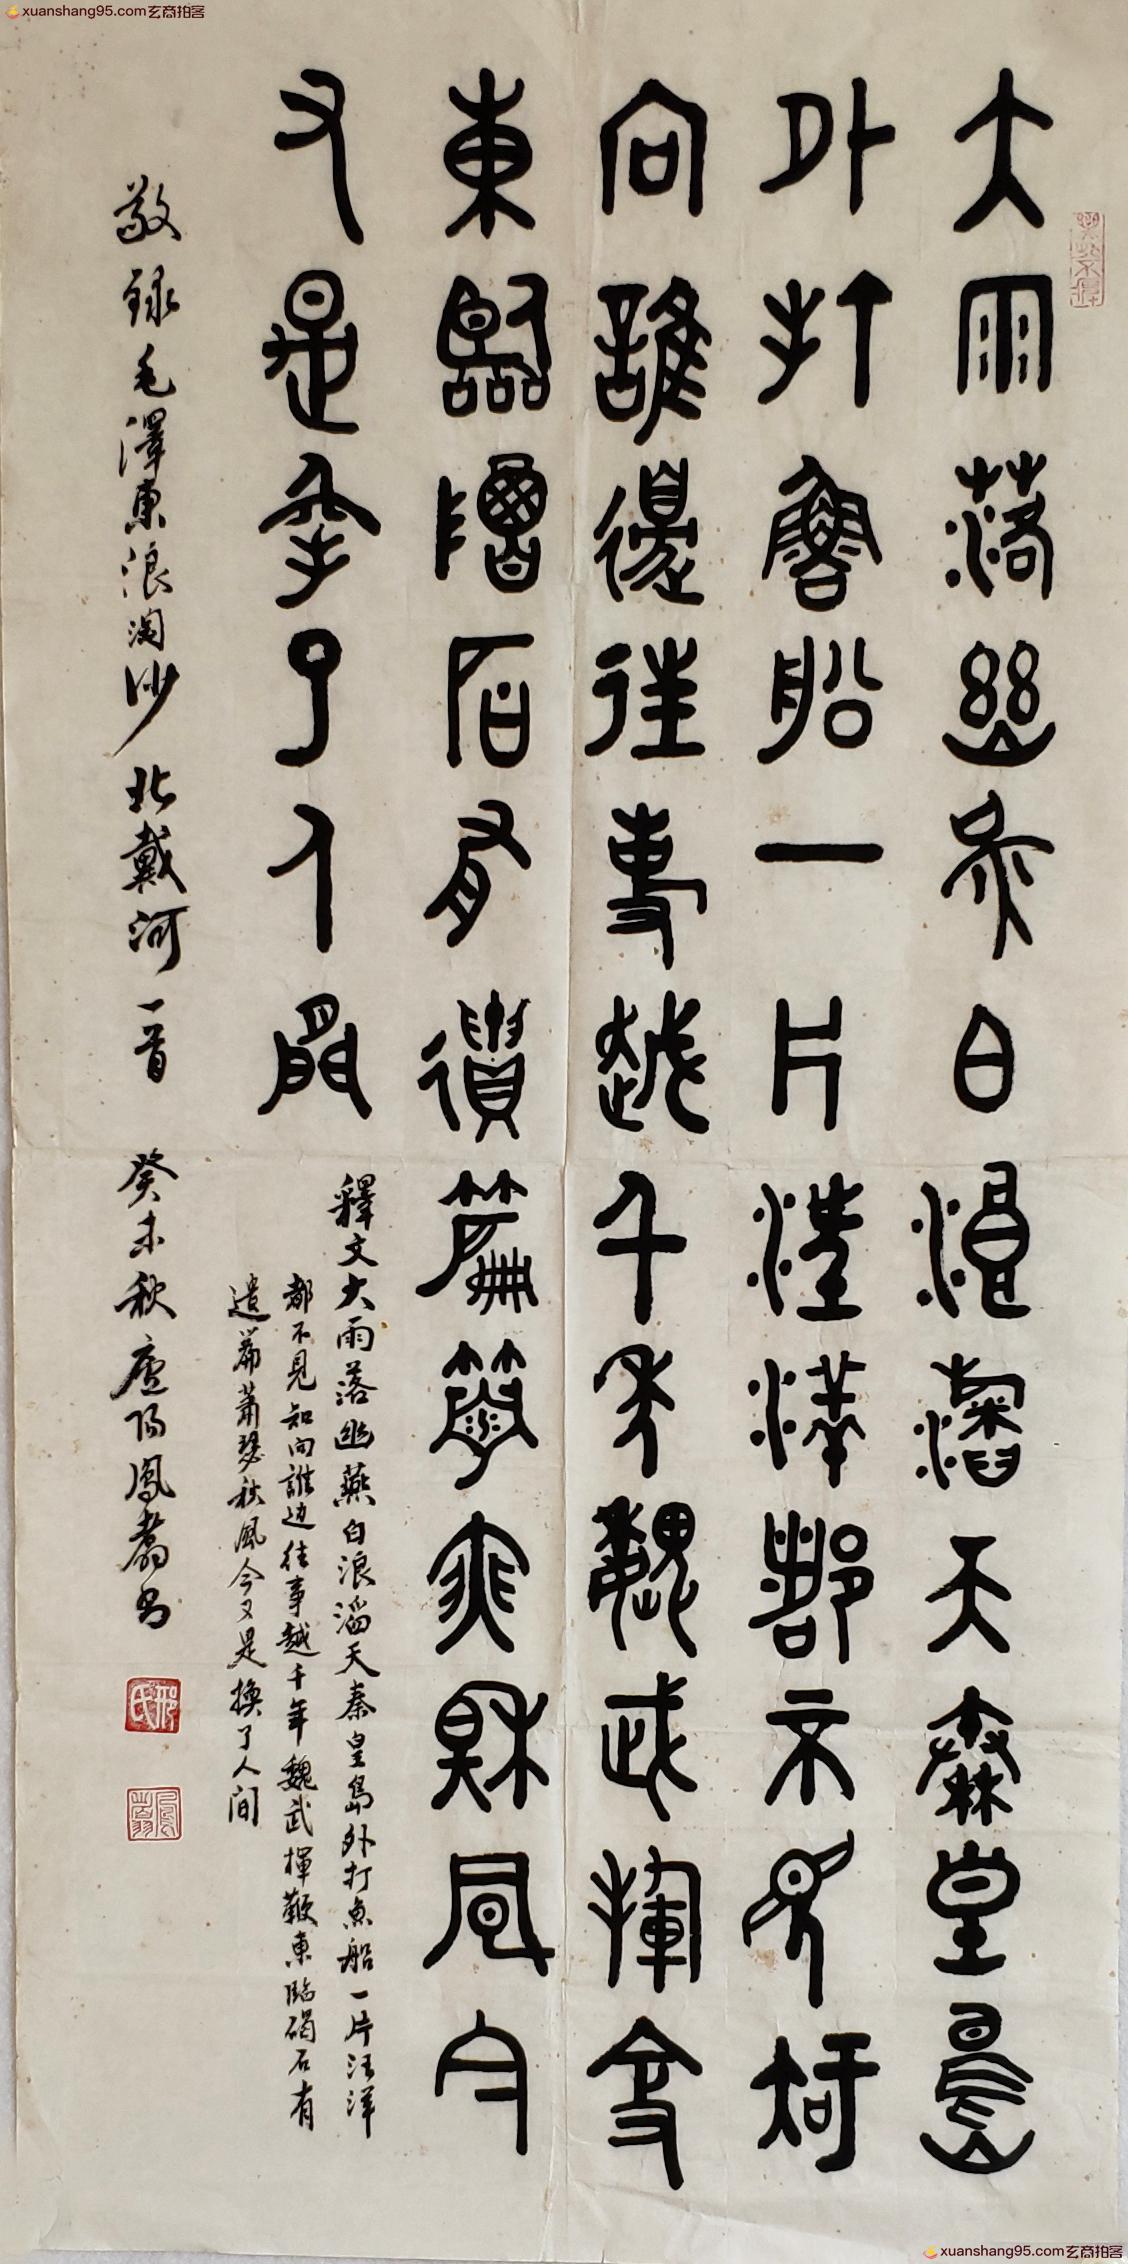 xuanshang95.com玄商拍客
大雨落幽燕白浪滔天秦皇島
外打魚船一片汪洋都不見知
向誰邊往事越千年魏武揮鞭
東臨碣石有遺篇蕭瑟秋風今
又是換了人間
釋文大雨落幽燕白浪滔天秦皇島外打魚船一片汪洋
都不見知向誰边往事越千年魏武揮鞭東臨碣石有
遺篇蕭瑟秋風今又是換了人间
敬録毛澤東浪淘沙北戴河一首 癸未秋廬陽鳳翥书
xuanshang95.com玄商拍客